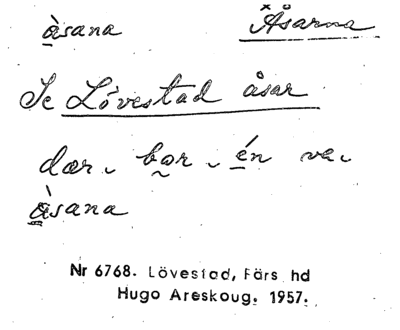 àsana Åsarna
Se Lövestad åsar
dær. bor. én va.
àsana
Nr 6768. Lövestad, Färs hd
Hugo Areskoug. 1957.